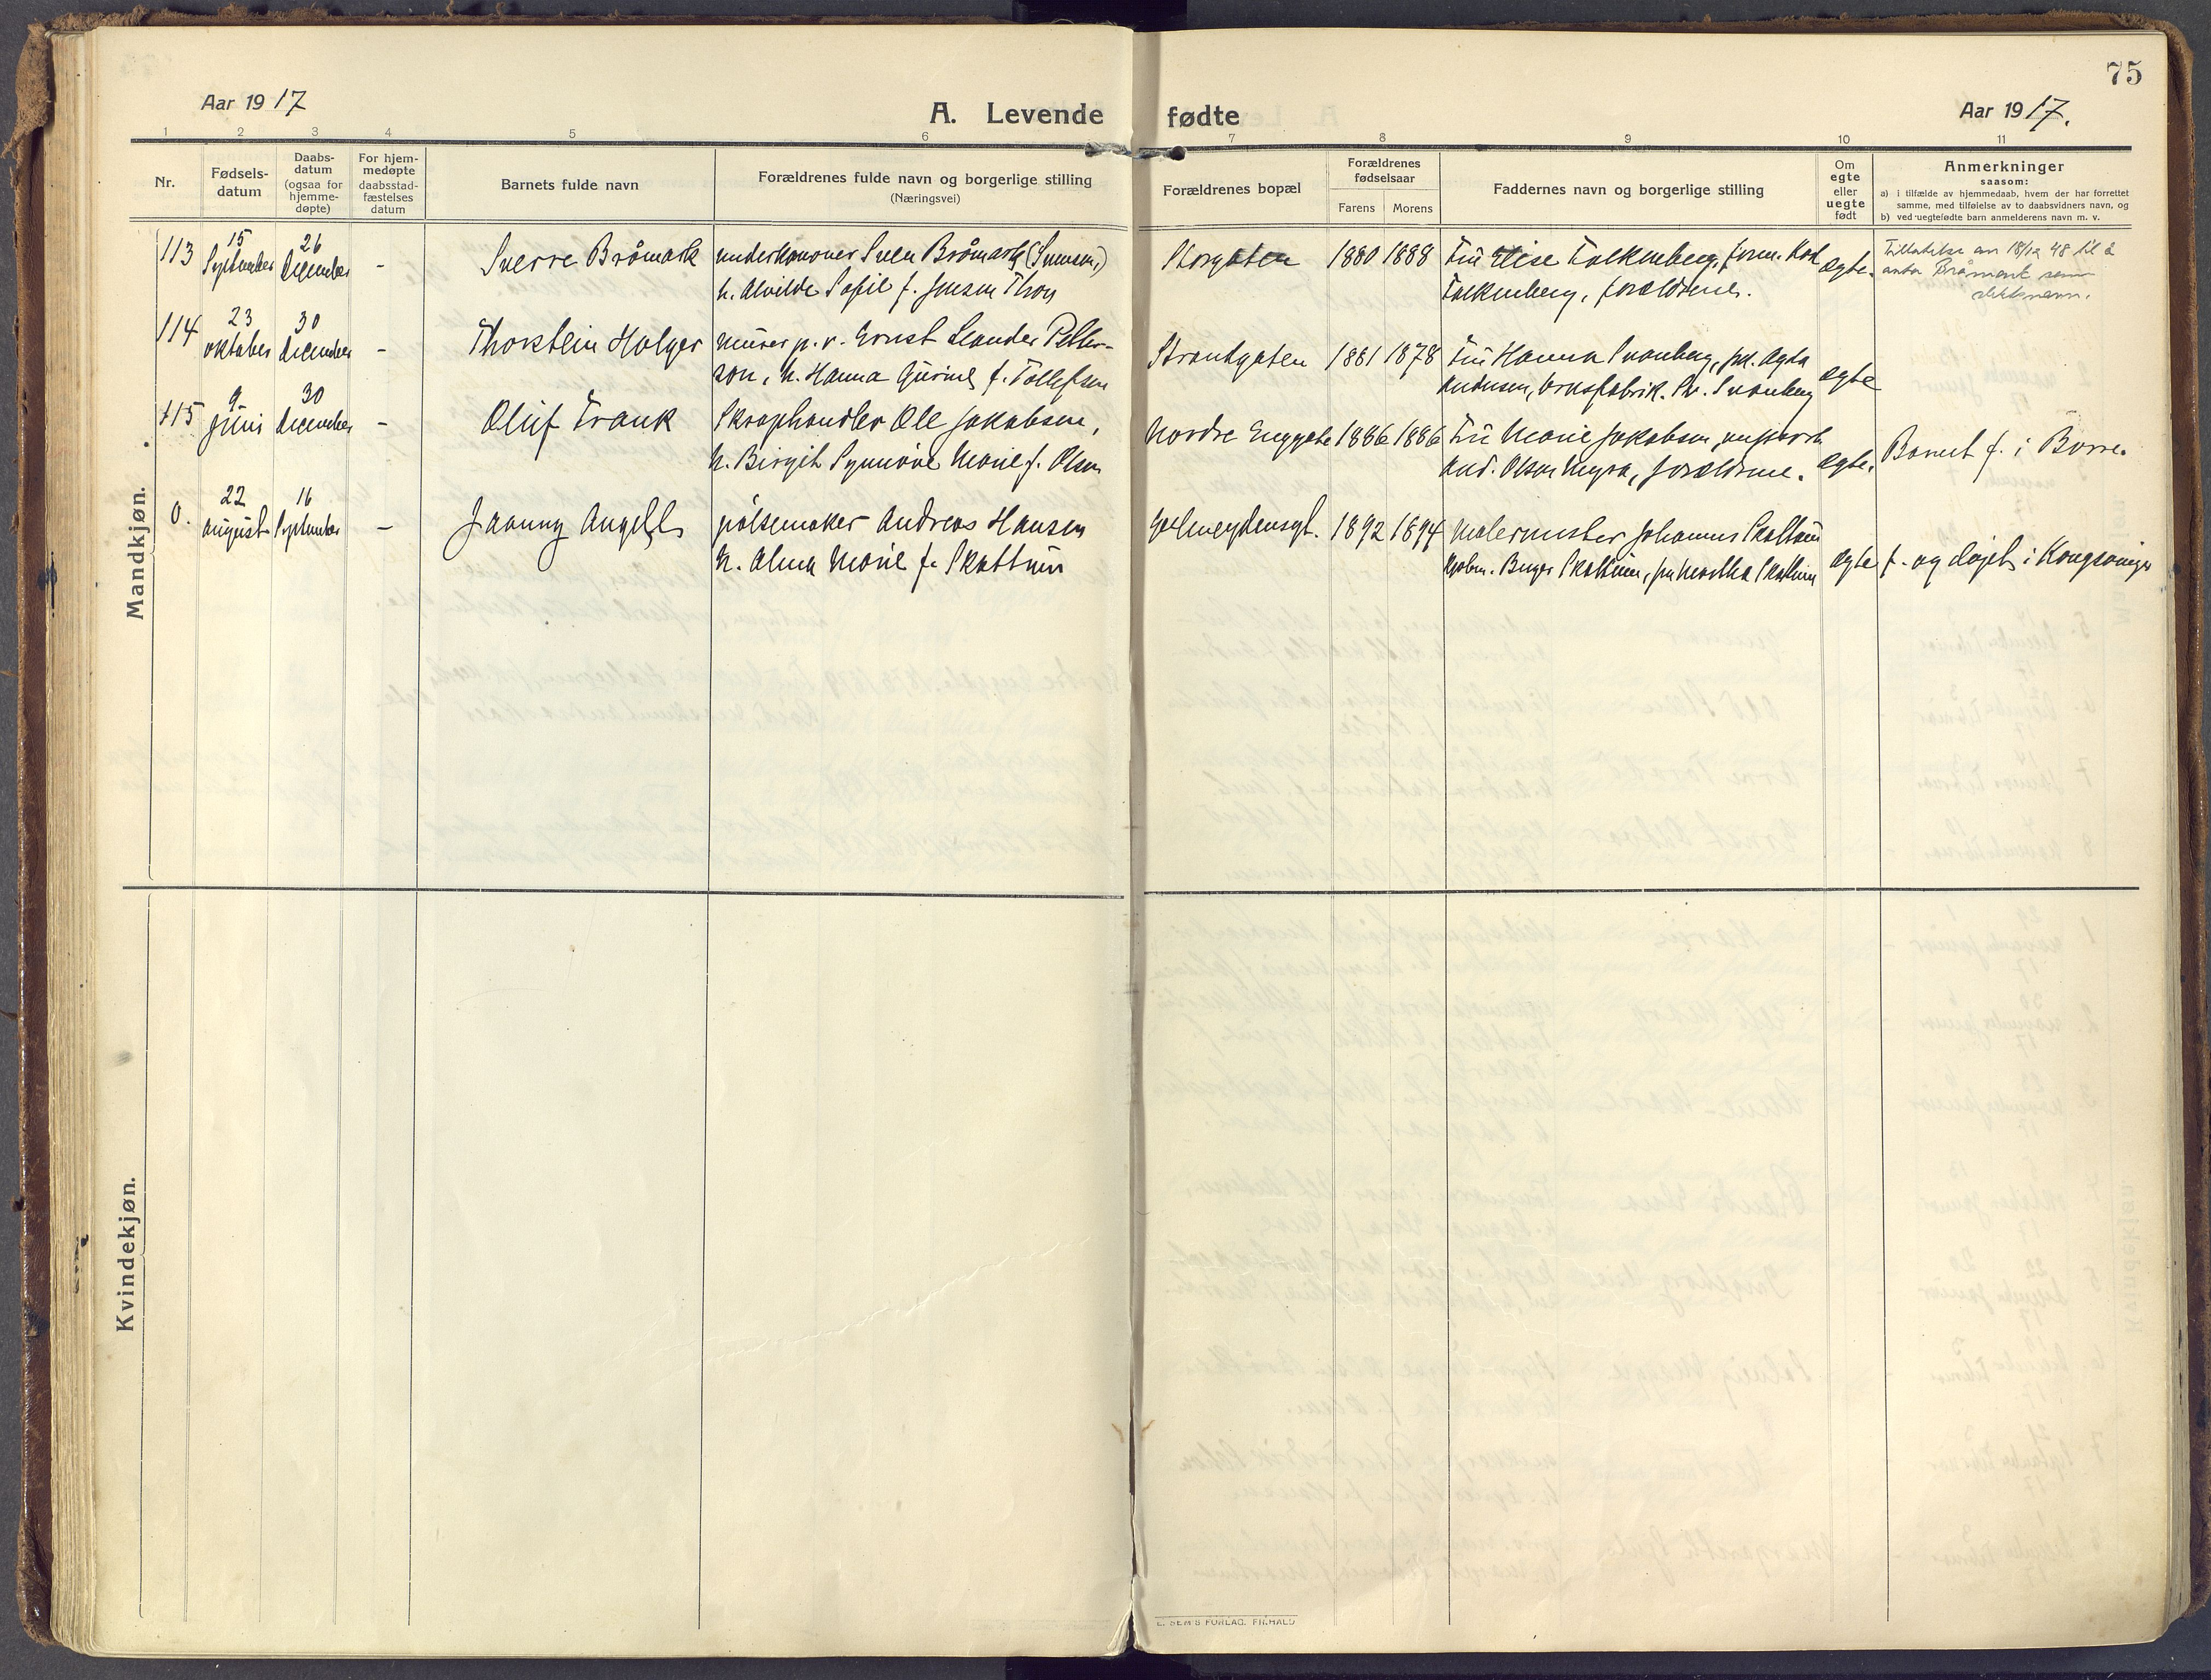 75
Aar 1917
A. Levende fødte
Aar 1917.
1 2 3 4 5 6 7 8 9 10 11
Nr.
Fødsels-
datum
Daabs-
datum
(ogsaa for
hjemme-
døpte)
For hjem-
medøpte
daabsstad-
fæstelses
datum
Barnets fulde navn
Forældrenes fulde navn og borgerlige stilling
(Næringsvei)
Forældrenes bopæl
Forældrenes
fødselsaar
Farens Morens
Faddernes navn og borgerlige stilling
Om
egte
eller
uegte
født
Anmerkninger
saasom:
a) i tilfælde av hjemmedaab, hvem der har forrettet
samme, med tilføielse av to daabsvidners navn, og
b) ved uegtefødte barn anmelderens navn m. v.
Mandkjøn.
113
15
September
26
December
-
Sverre Bråmark
underkanoner Sven Bråmark (Svensen)
h. Alvilde Sofie f. Jensen Thon
Storgaten
1880 1888
Fru Elise Falkenberg,
Falkenberg, forældrene.
egte.
Tillatelse av 18/12 48 til å
anta Bråmark som
slektsnavn.
114
23
oktober
30
december
-
Thorstein Holger
murer p. v. Ernst Leander Petter-
son, h. Hanna Gurine f. Tollefsen
Strandgaten
1881 1878
Fru Hanna Svanberg, frk. Agda
Andersen, Svanberg
egte
115
9
juni
30
december
-
Oluf Frank
Skraphandler Ole Jakobsen,
h. Birgit Synnøve Marie f. Olsen
Nordre Enggate
1886 1886
Fru Marie Jakobsen, ungkarl
And. Olsen Myra, forældrene.
egte.
Barnet f. i Borre.
0.
22
august
16
September
-
Jaanny Angell
pølsemaker Andreas Hansen
h. Alma Marie f. Skattum
1892 1894
Malermester Johannes Skattum
Birger Skattum, fru Martha Skattum
egte
f. og døpt i Kongsvinger
Kvindekjøn.
E. SEM'S FORLAG. FR.HALD